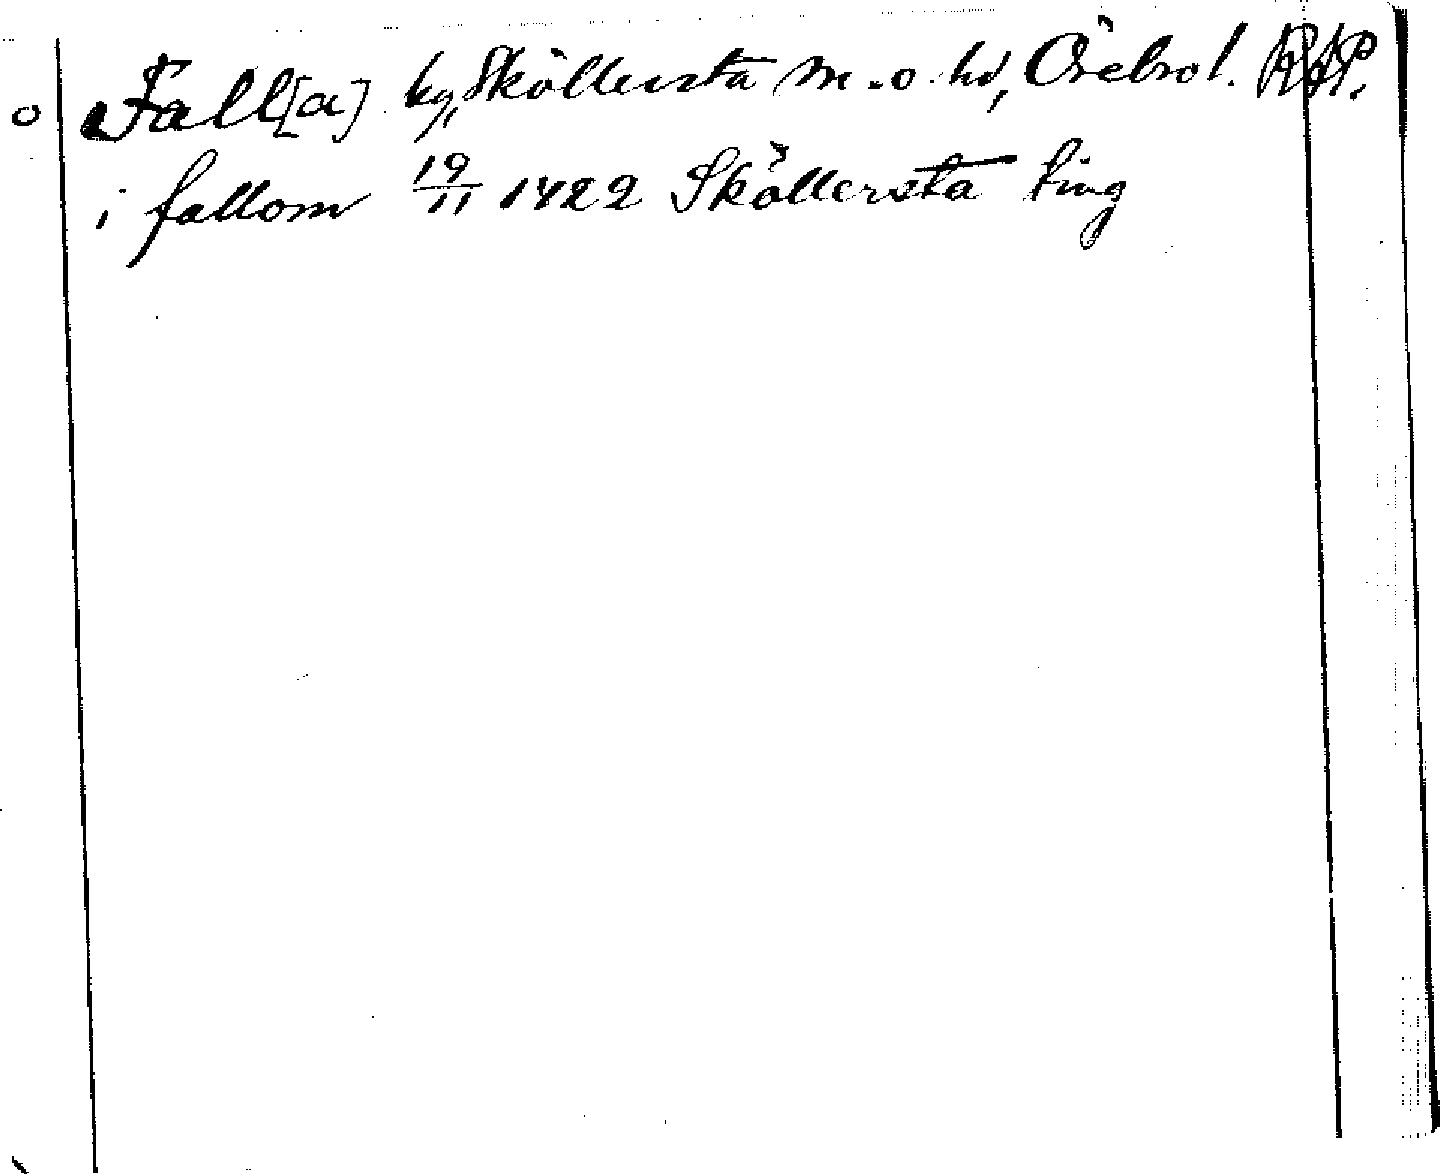 o Fall[a] by, Sköllersta sn o. hd, Örebro l. RAP.
i fallom 19/11 1422 Sköllersta ting